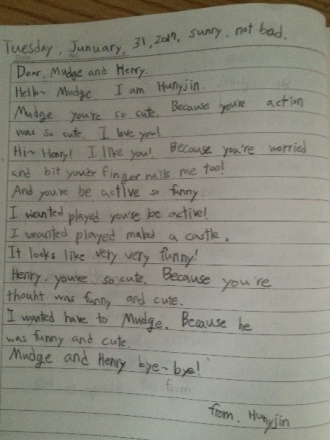 Tuesday, Junuary, 31, 2017, sunny, not bad.
Dear, Mudge and Henry.
Hello~ Mudge. I am Hunyjin.
Mudge you're so cute. Because youre action
was so cute. I love you!
Hi~ Henry! I like you! Because you're worried
and bit youer finger nails me too!
And you're be active so funny.
I wanted played you'se be active!
I wanted played maked a castle.
It looks like very very funny!
Henry you're so cute. Because you're
thouht was funny and cute.
I wanted have to Mudge. Because he
was funny and cute.
Mudge and Henry bye~bye!
from
from. Hunyjin